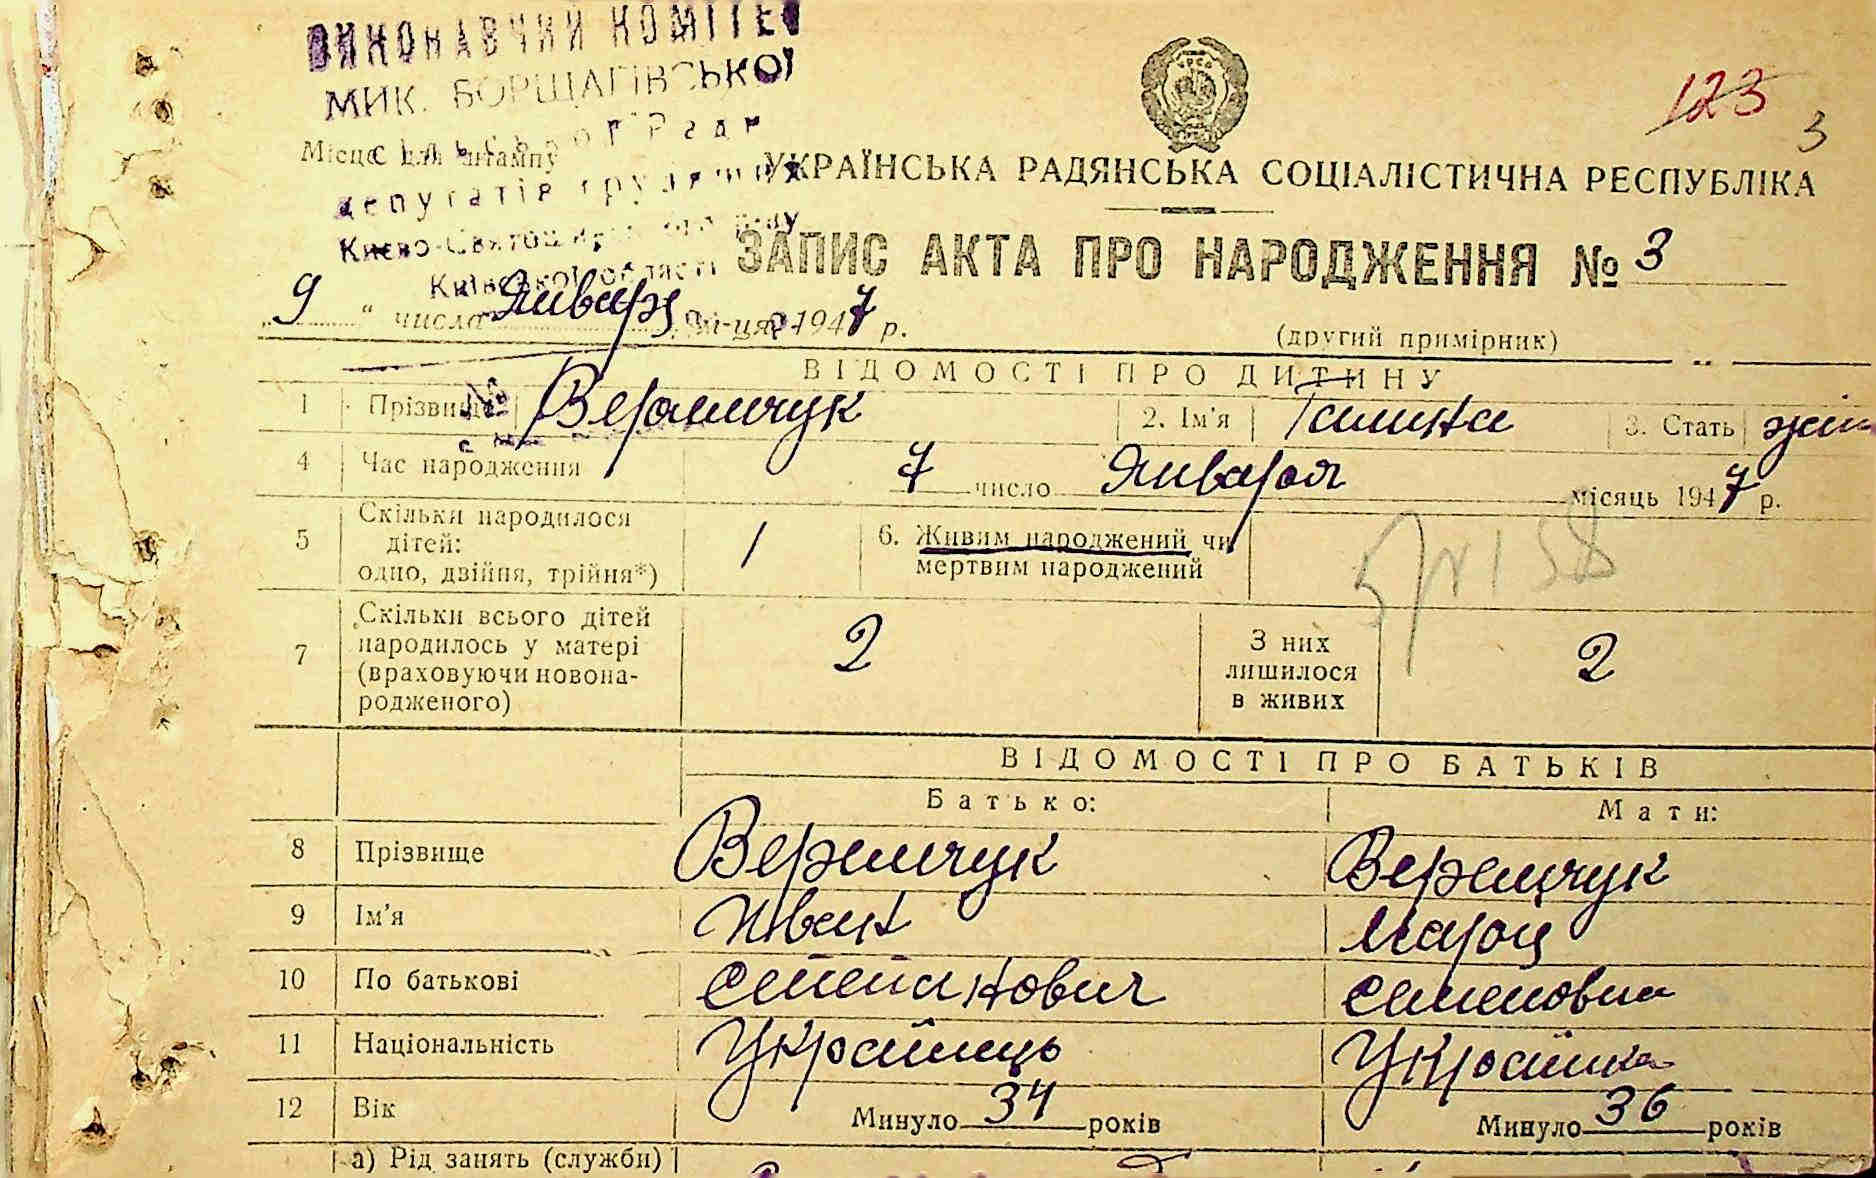 ВИКОНАВЧИЙ КОМІТЕТ
МИК. БОРЩАГІВСЬКОЇ
сільської Ради
Місце для штампу
депутатів трудящих
Києво-Святошинського р-ну
Київської області
123
3
УКРАЇНСЬКА РАДЯНСЬКА СОЦІАЛІСТИЧНА РЕСПУБЛІКА
ЗАПИС АКТА ПРО НАРОДЖЕННЯ № 3
„ 9 “ числа Января м-ця 1947 р.
(другий примірник)
ВІДОМОСТІ ПРО ДИТИНУ
1 Прізвище Веремчук 2. Ім'я Галина 3. Стать жін
4 Час народження 7 число Января місяць 1947 р.
5 Скільки народилося дітей: одно, двійня, трійня*) 1 6. Живим народжений чи мертвим народжений
7 Скільки всього дітей народилось у матері (враховуючи новона-родженого) 2 З них лишилося в живих 2
ВІДОМОСТІ ПРО БАТЬКІВ
Батько: Мати:
8 Прізвище Веремчук Веремчук
9 Ім'я Иван Мария
10 По батькові Степанович Семеновна
11 Національність Українець Українка
12 Вік Минуло 34 років Минуло 36 років
а) Рід занять (служби)